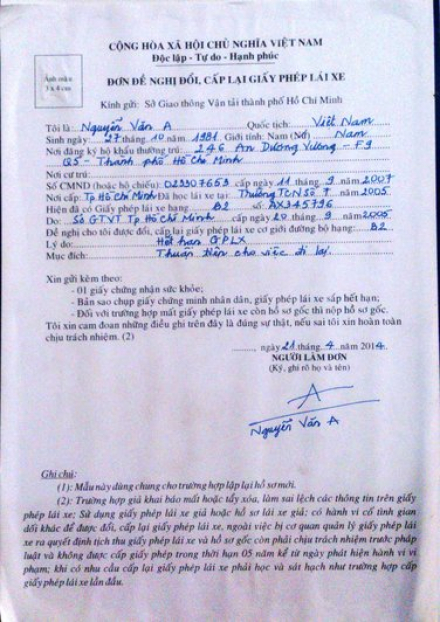 CỘNG HÒA XÃ HỘI CHỦ NGHĨA VIỆT NAM
Độc lập - Tự do - Hạnh phúc
Ảnh màu
3 x 4 cm
ĐƠN ĐỀ NGHỊ ĐỔI, CẤP LẠI GIẤY PHÉP LÁI XE
Kính gửi: Sở Giao thông Vận tải thành phố Hồ Chí Minh
Tôi là: Nguyễn Văn A Quốc tịch: Việt Nam
Sinh ngày: 27 tháng 10 năm 1981 Giới tính: Nam (Nữ) Nam
Nơi đăng ký hộ khẩu thường trú: 246 An Dương Vương - F9
Q5 - Thành phố Hồ Chí Minh
Nơi cư trú:
Số CMND (hoặc hộ chiếu): 022307653 cấp ngày 11 tháng 9 năm 2007
Nơi cấp: Tp Hồ Chí Minh Đã học lái xe tại: Trường TCN Số 7 năm 2005
Hiện đã có Giấy phép lái xe hạng B2 số: AX345796
Do: Sở GTVT Tp Hồ Chí Minh cấp ngày 20 tháng 9 năm 2005
Đề nghị cho tôi được đổi, cấp lại giấy phép lái xe cơ giới đường bộ hạng: B2
Lý do: Hết hạn GPLX
Mục đích: Thuận tiện cho việc đi lại.
Xin gửi kèm theo:
- 01 giấy chứng nhận sức khỏe;
- Bản sao chụp giấy chứng minh nhân dân, giấy phép lái xe sắp hết hạn;
- Đối với trường hợp mất giấy phép lái xe còn hồ sơ gốc thì nộp hồ sơ gốc.
Tôi xin cam đoan những điều ghi trên đây là đúng sự thật, nếu sai tôi xin hoàn toàn
chịu trách nhiệm. (2)
........, ngày 21 tháng 4 năm 2014
NGƯỜI LÀM ĐƠN
(Ký, ghi rõ họ và tên)
A
Nguyễn Văn A
Ghi chú:
(1): Mẫu này dùng chung cho trường hợp lập lại hồ sơ mới.
(2): Trường hợp giả khai báo mất hoặc tẩy xóa, làm sai lệch các thông tin trên giấy
phép lái xe; Sử dụng giấy phép lái xe giả hoặc hồ sơ lái xe giả; có hành vi cố tình gian
dối khác để được đổi, cấp lại giấy phép lái xe, ngoài việc bị cơ quan quản lý giấy phép lái
xe ra quyết định tịch thu giấy phép lái xe và hồ sơ gốc còn phải chịu trách nhiệm trước pháp
luật và không được cấp giấy phép trong thời hạn 05 năm kể từ ngày phát hiện hành vi vi
phạm; khi có nhu cầu cấp lại giấy phép lái xe phải học và sát hạch như trường hợp cấp
giấy phép lái xe lần đầu.